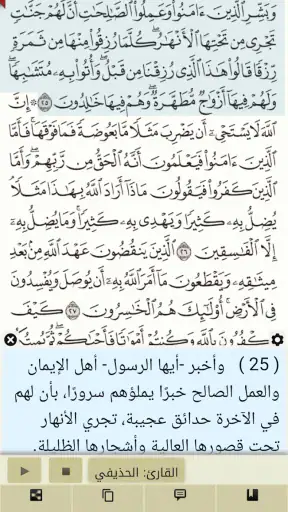 وَبَشِّرِ ٱلَّذِينَ ءَامَنُوا۟ وَعَمِلُوا۟ ٱلصَّٰلِحَٰتِ أَنَّ لَهُمْ جَنَّٰتٍ
تَجْرِى مِن تَحْتِهَا ٱلْأَنْهَٰرُ ۖ كُلَّمَا رُزِقُوا۟ مِنْهَا مِن ثَمَرَةٍ
رِّزْقًا ۙ قَالُوا۟ هَٰذَا ٱلَّذِى رُزِقْنَا مِن قَبْلُ ۖ وَأُتُوا۟ بِهِۦ مُتَشَٰبِهًا ۖ
وَلَهُمْ فِيهَآ أَزْوَٰجٌ مُّطَهَّرَةٌ ۖ وَهُمْ فِيهَا خَٰلِدُونَ ٢٥ ۞ إِنَّ
ٱللَّهَ لَا يَسْتَحْىِۦٓ أَن يَضْرِبَ مَثَلًا مَّا بَعُوضَةً فَمَا فَوْقَهَا ۚ فَأَمَّا
ٱلَّذِينَ ءَامَنُوا۟ فَيَعْلَمُونَ أَنَّهُ ٱلْحَقُّ مِن رَّبِّهِمْ ۖ وَأَمَّا
ٱلَّذِينَ كَفَرُوا۟ فَيَقُولُونَ مَاذَآ أَرَادَ ٱللَّهُ بِهَٰذَا مَثَلًا ۘ
يُضِلُّ بِهِۦ كَثِيرًا وَيَهْدِى بِهِۦ كَثِيرًا ۚ وَمَا يُضِلُّ بِهِۦٓ
إِلَّا ٱلْفَٰسِقِينَ ٢٦ ٱلَّذِينَ يَنقُضُونَ عَهْدَ ٱللَّهِ مِنۢ بَعْدِ
مِيثَٰقِهِۦ وَيَقْطَعُونَ مَآ أَمَرَ ٱللَّهُ بِهِۦٓ أَن يُوصَلَ وَيُفْسِدُونَ
فِى ٱلْأَرْضِ ۚ أُو۟لَٰٓئِكَ هُمُ ٱلْخَٰسِرُونَ ٢٧ كَيْفَ
تَكْفُرُونَ بِٱللَّهِ وَكُنتُمْ أَمْوَٰتًا فَأَحْيَٰكُمْ ۖ ثُمَّ يُمِيتُكُمْ
( 25 ) وأخبر -أيها الرسول- أهل الإيمان
والعمل الصالح خبرًا يملؤهم سرورًا، بأن لهم
في الآخرة حدائق عجيبة، تجري الأنهار
تحت قصورها العالية وأشجارها الظليلة.
القارئ: الحذيفي